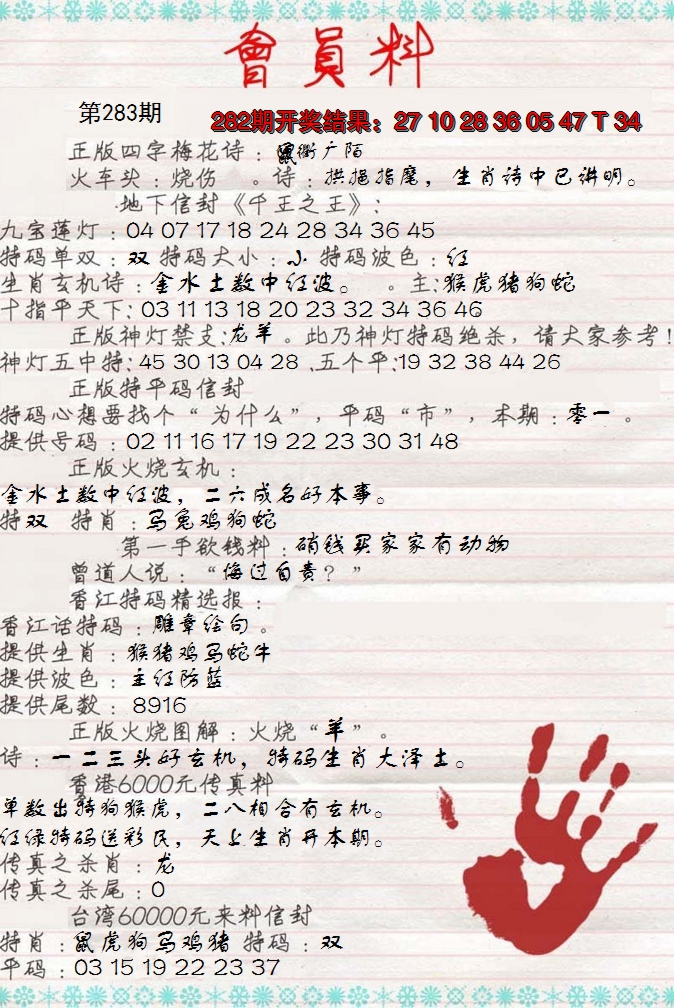 會員料
第283期
282期开奖结果：27 10 28 36 05 47 T 34
正版四字梅花诗：鼠衢广陌
火车头：烧伤 。诗：拱挹指麾，生肖诗中已讲明。
地下信封《千王之王》：
九宝莲灯：04 07 17 18 24 28 34 36 45
特码单双：双 特码大小：小 特码波色：红
生肖玄机诗：金水土数中红波。 。主：猴虎猪狗蛇
十指平天下：03 11 13 18 20 23 32 34 36 46
正版神灯禁支：龙羊。此乃神灯特码绝杀，请大家参考！
神灯五中特：45 30 13 04 28 .五个平：19 32 38 44 26
正版特平码信封
特码心想要找个“为什么”，平码“市”，本期：零一 。
提供号码：02 11 16 17 19 22 23 30 31 48
正版火烧玄机：
金水土数中红波，二六成名好本事。
特双 特肖：马兔鸡狗蛇
第一手欲钱料：硝钱买家家有动物
曾道人说：“悔过自责？”
香江特码精选报：
香江话特码：雕章绘句。
提供生肖：猴猪鸡马蛇牛
提供波色：主红防蓝
提供尾数：8916
正版火烧图解：火烧“羊”。
诗：一二三头好玄机，特码生肖大泽土。
香港6000元传真料
单数出骑狗猴虎，二八相合有玄机。
红绿特码送彩民，天上生肖开本期。
传真之杀肖：龙
传真之杀尾：0
台湾60000元来料信封
特肖：鼠虎狗马鸡猪 特码：双
平码：03 15 19 22 23 37